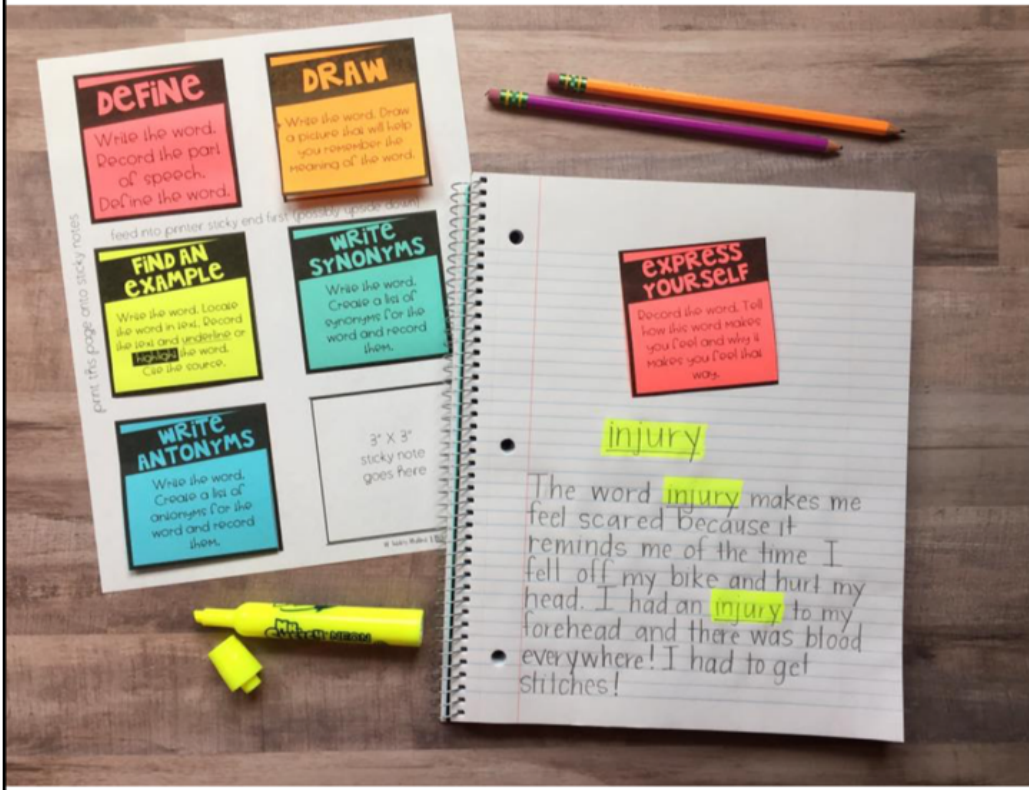 DEFINE
Write the word.
Record the part
of speech.
Define the word.
DRAW
Write the word. Draw
a picture that will help
you remember the
meaning of the word.
feed into printer sticky end first (possibly upside down)
print this page onto sticky notes
FIND AN
EXAMPLE
Write the word. Locate
the word in text. Record
the text and underline or
highlight the word.
Cite the source.
WRITE
SYNONYMS
Write the word.
Create a list of
synonyms for the
word and record
them.
WRITE
ANTONYMS
Write the word.
Create a list of
antonyms for the
word and record
them.
3" X 3"
sticky note
goes here
EXPRESS
YOURSELF
Record the word. Tell
how this word makes
you feel and why it
makes you feel that
way.
injury
The word injury makes me
feel scared because it
reminds me of the time I
fell off my bike and hurt my
head. I had an injury to my
forehead and there was blood
everywhere! I had to get
stitches!
MR.
SKETCH NEON